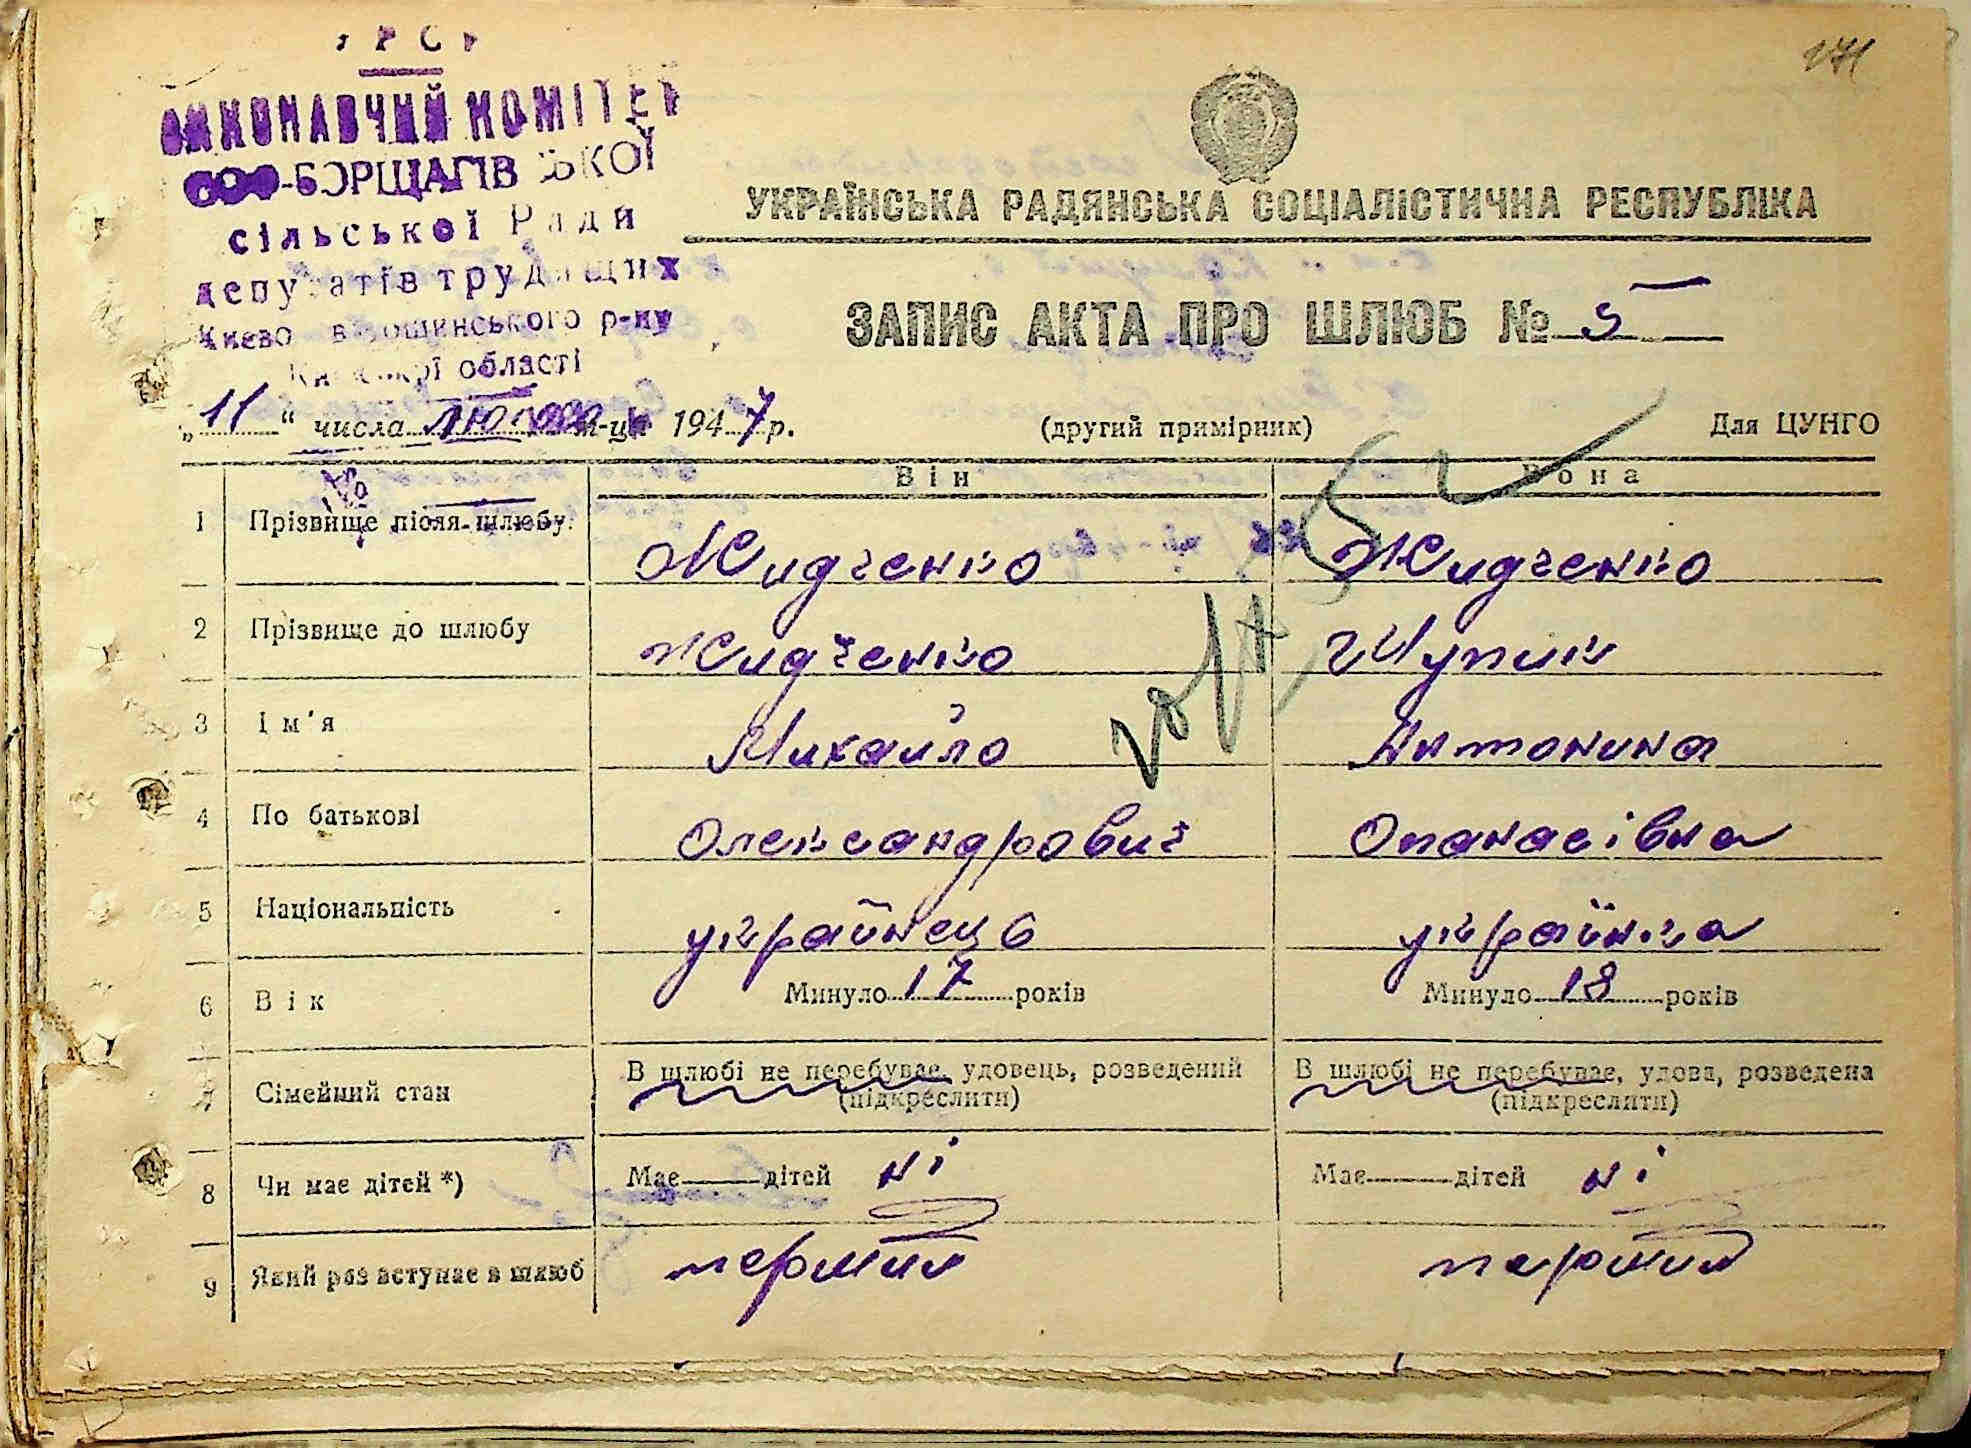 УРСР
271
ВИКОНАВЧИЙ КОМІТЕТ
СОФ-БОРЩАГІВСЬКОЇ
сільської Ради
депутатів трудящих
Києво-Святошинського р-ну
Київської області
УКРАЇНСЬКА РАДЯНСЬКА СОЦІАЛІСТИЧНА РЕСПУБЛІКА
ЗАПИС АКТА ПРО ШЛЮБ № 5
„11“ числа лютого м-ця 1947 р. (другий примірник) Для ЦУНГО
Він Вона
1 Прізвище після шлюбу Жидченко Жидченко
2 Прізвище до шлюбу Жидченко Шупик
3 Ім'я Михайло Антонина
4 По батькові Олександрович Опанасівна
5 Національність українець українка
6 Вік Минуло 17 років Минуло 18 років
7 Сімейний стан В шлюбі не перебуває, удовець, розведений В шлюбі не перебуває, удова, розведена
(підкреслити) (підкреслити)
8 Чи має дітей *) Має дітей ні Має дітей ні
9 Який раз вступає в шлюб перший перший